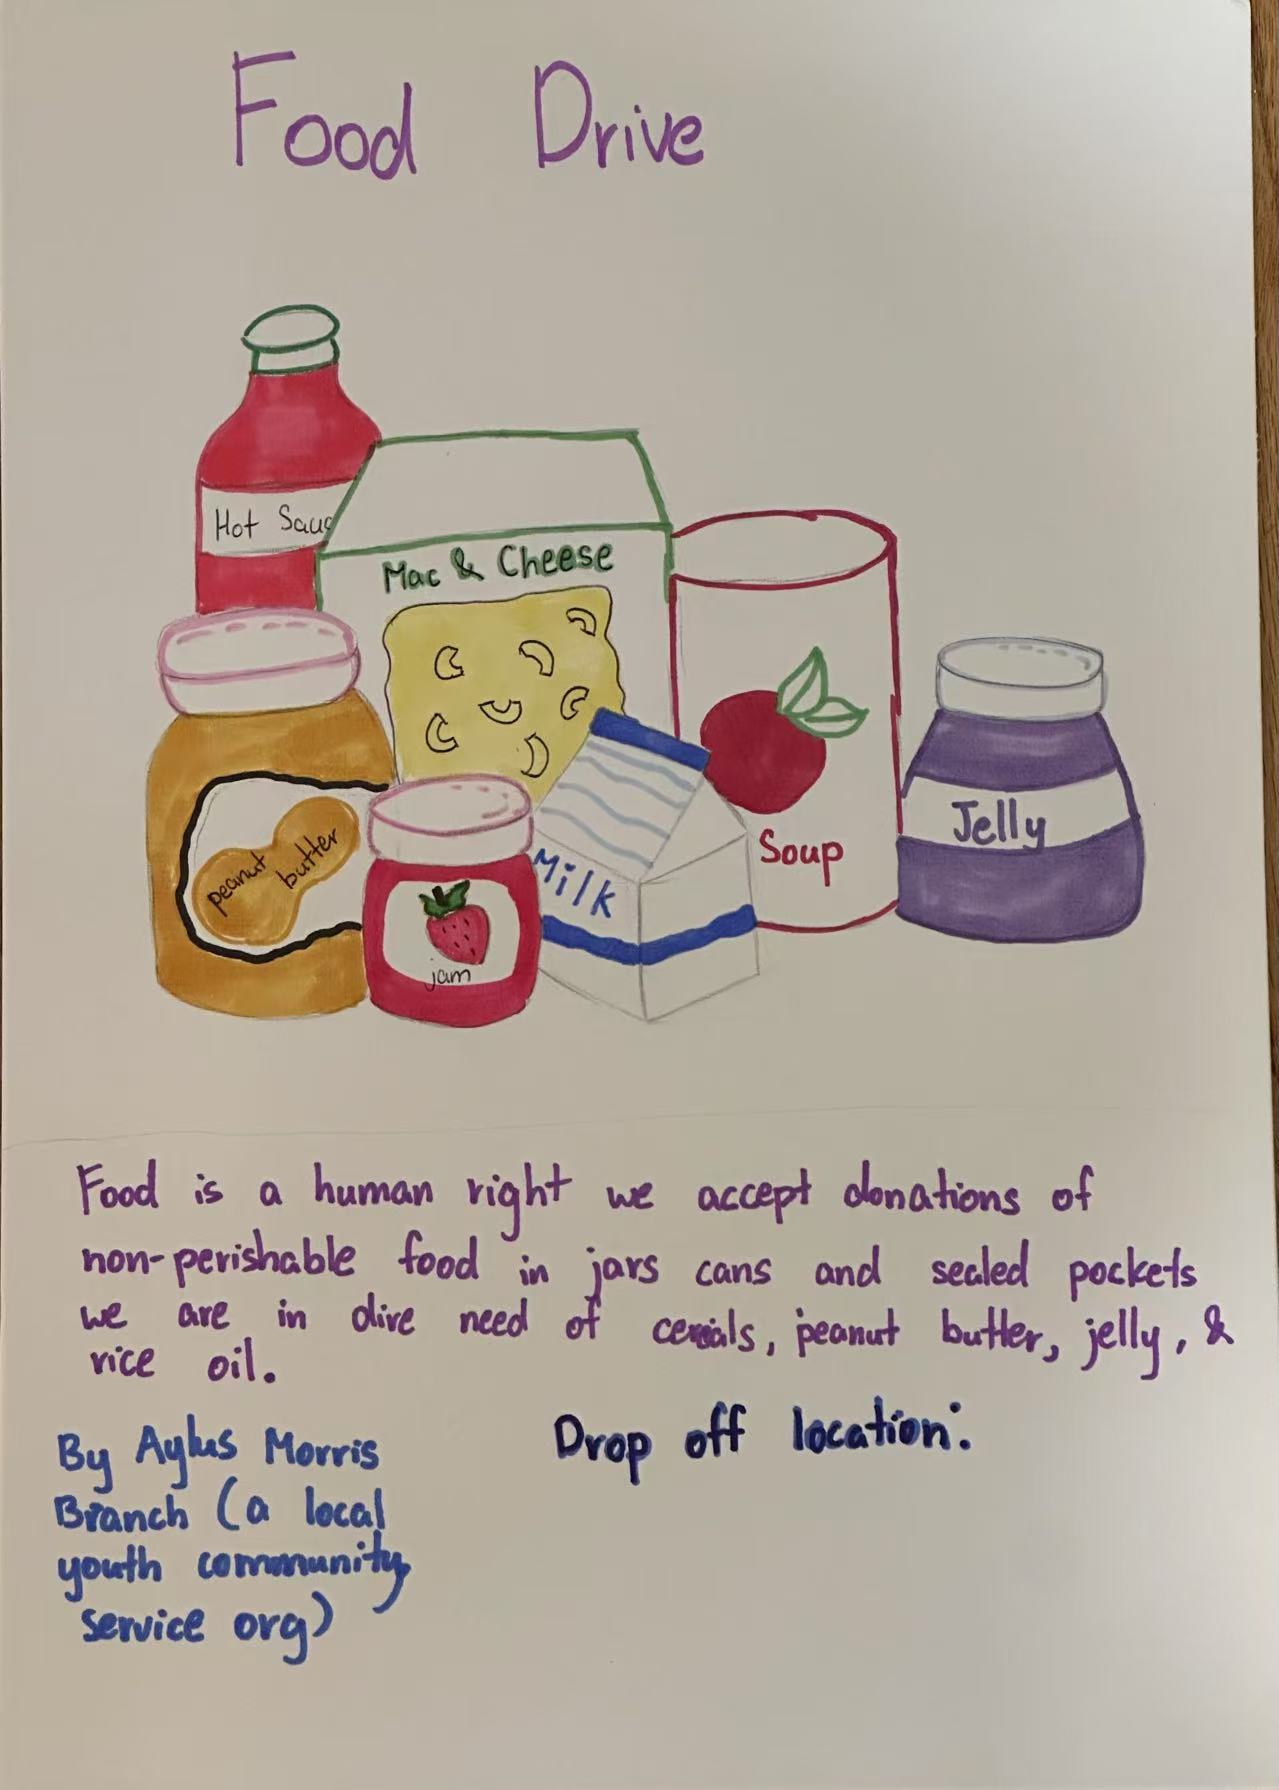 Food Drive
Hot Sauc
Mac & Cheese
peanut butter
jam
Milk
Soup
Jelly
Food is a human right we accept donations of
non-perishable food in jars cans and sealed pockets
we are in dire need of cereals, peanut butter, jelly, &
rice oil.
By Aylus Morris
Branch (a local
youth community
service org)
Drop off location: